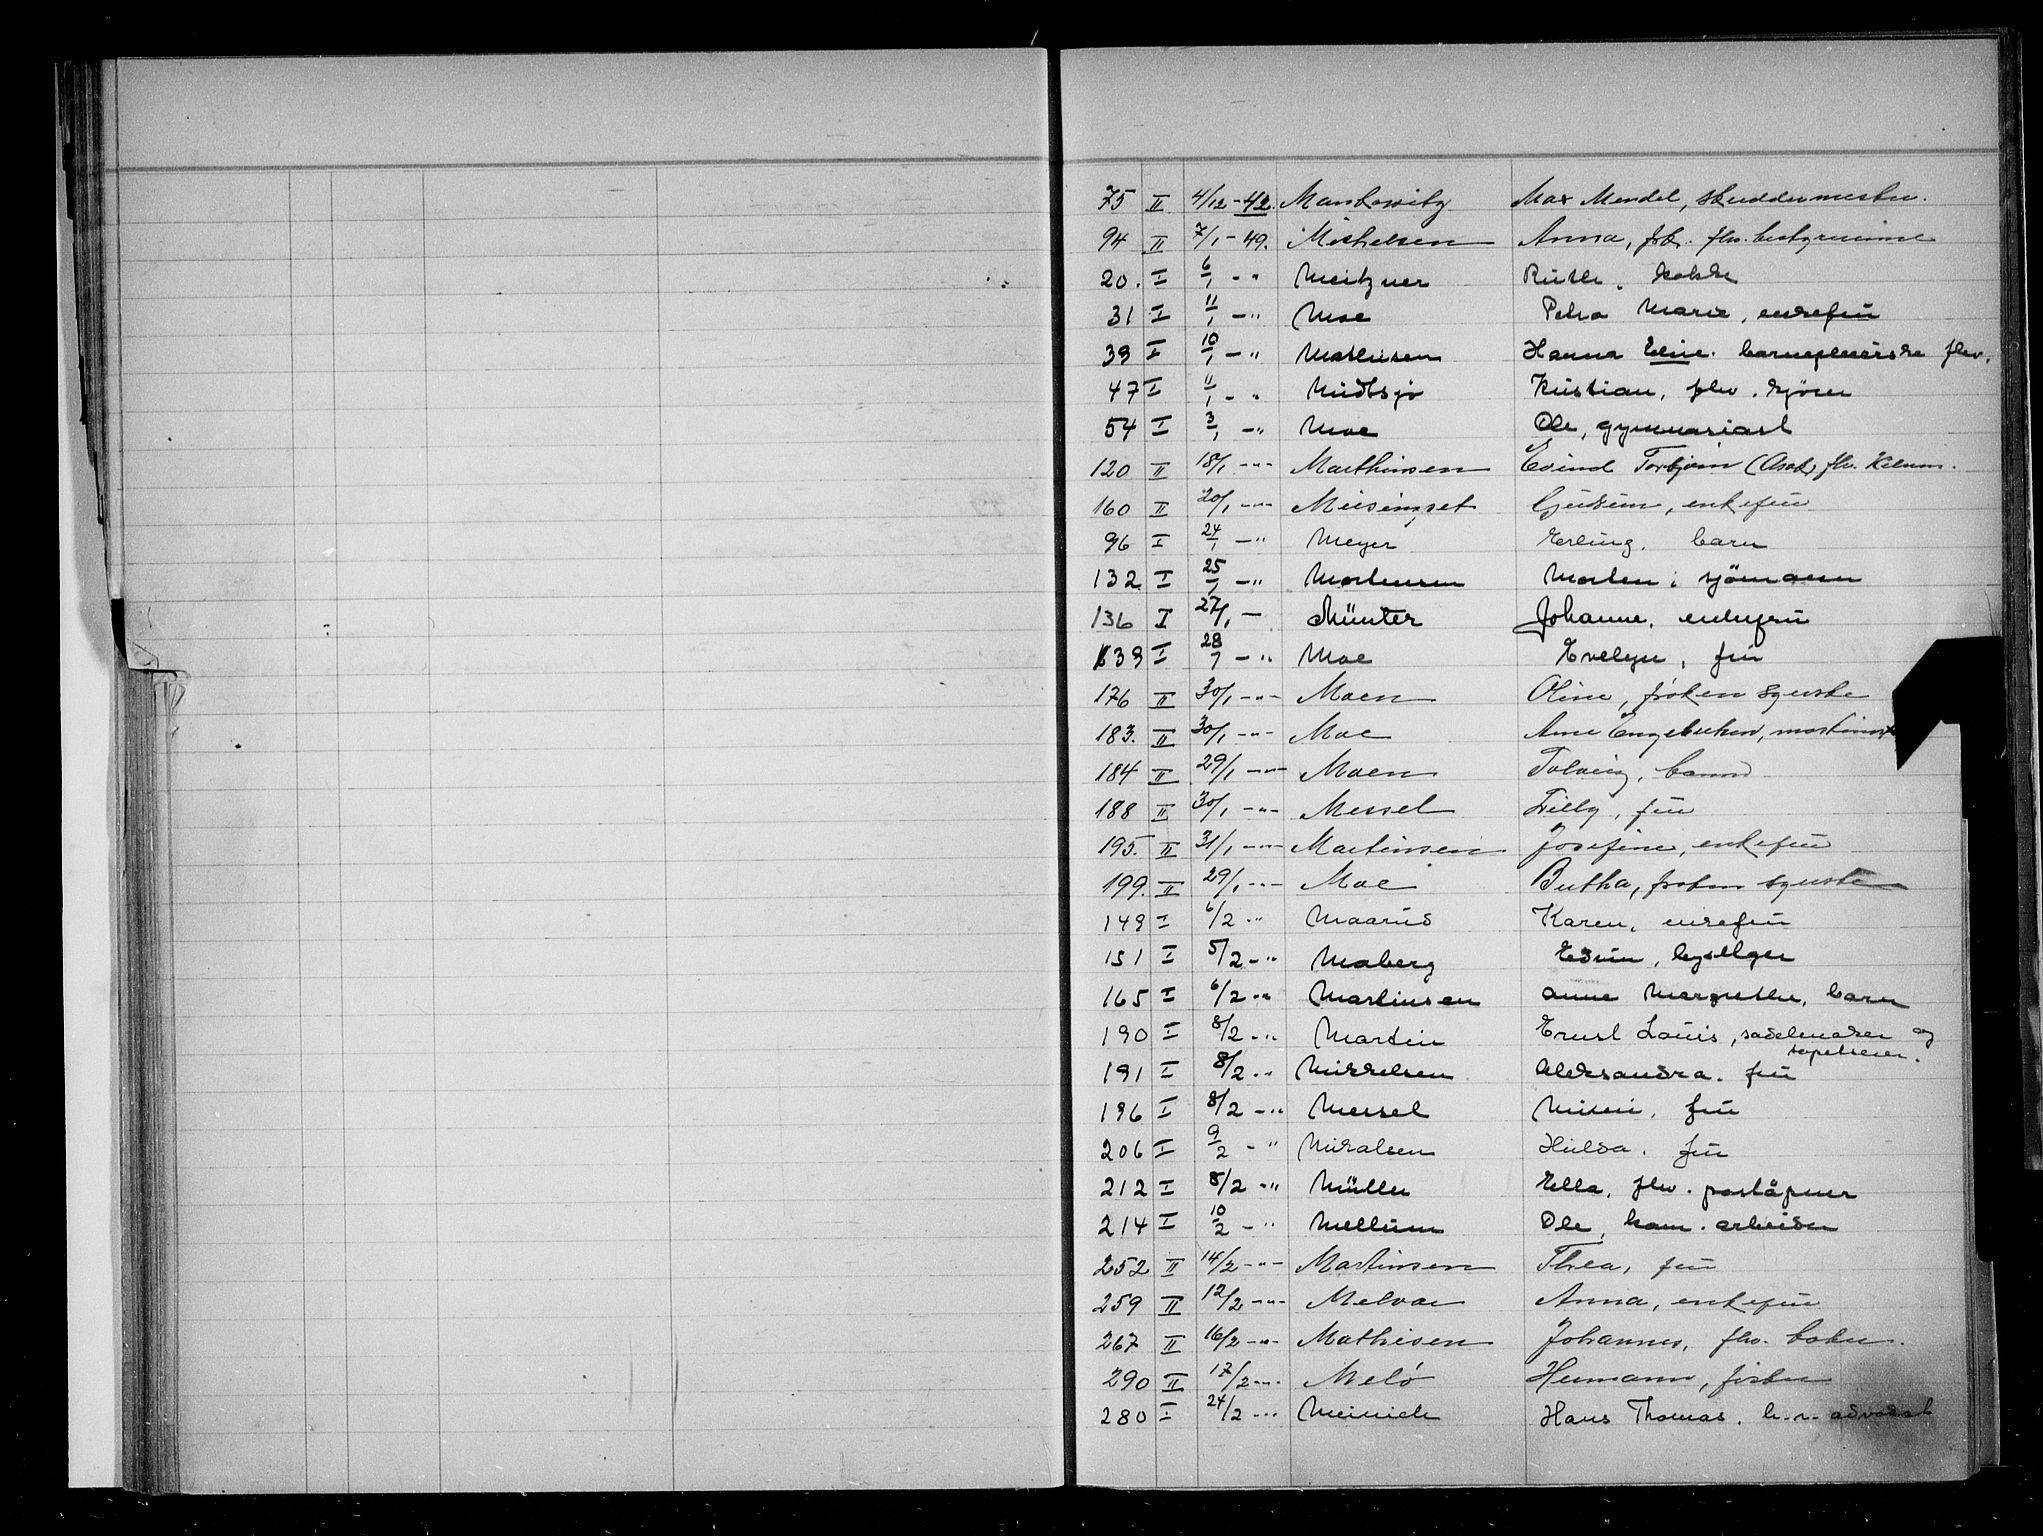 75 II 4/12-42. Mankowitz Max Mendel, skreddermester.
94 II 7/1-49. Michelsen Anna, frk. fhv. bestyrerinne
20. I 6/1 - " Meitzner Ruth, kokke
31 I 11/1 - " Moe Petra Marie, enkefru
39 I 10/1 - " Mathisen Hanna Eline. barnepleierske fhv.
47 I 11/1 - " Midtsjø Kristian, fhv. kjører
54 I 3/1 - " Moe Ole, gymnasiast
120 II 18/1 -"- Marthinsen Eivind Torbjørn
160 II 20/1 -"- Gudrun, enkefru
96 I 24/1 - " Meyer Erling, barn
132 I 25/1 - " Mortensen Morten, sjømann
136 I 27/1 - Münter Johanne, enkefru
139 I 28/1 - " Moe Evelyn, fru
176 II 30/1 -"- Moen Oline, frøken syerske
183. II 30/1 -"- Moe Arne Engebretsen, maskinist
184 II 29/1 -"- Moen Solveig, barn
188 II 30/1 -"- Messel Lilly, fru
195. II 31/1 -"- Martinsen Josefine, enkefru
199. II 29/1 -"- Moe Bertha, frøken syerske
149 I 6/2 " Maarud Karen, enkefru
151 I 5/2 - " Moberg Edvin, byselger
165 I 6/2 " Martinsen Anne Margrethe, barn
190 I 8/2 - " Martin Ernst Louis, sadelmaker og
tapetserer.
191 I 8/2 " Mikkelsen Aleksandra. fru
196 I 8/2 - " Messel Mimi, fru
206 I 9/2 - " Mikalsen Hilda. fru
212 I 8/2 - " Müller Ella, fhv. poståpner
214 I 10/2 - " Mellum Ole, kom. arbeider
252 II 14/2 -"- Martinsen Thea, fru
259 II 12/2 -"- Melvær Anna, enkefru
267 II 16/2 -"- Mathisen Johannes, fhv. baker.
290 II 17/2 -"- Melø Hermann, fisker
280 I 24/2 -"- Meinich Hans Thomas. h.r. advokat